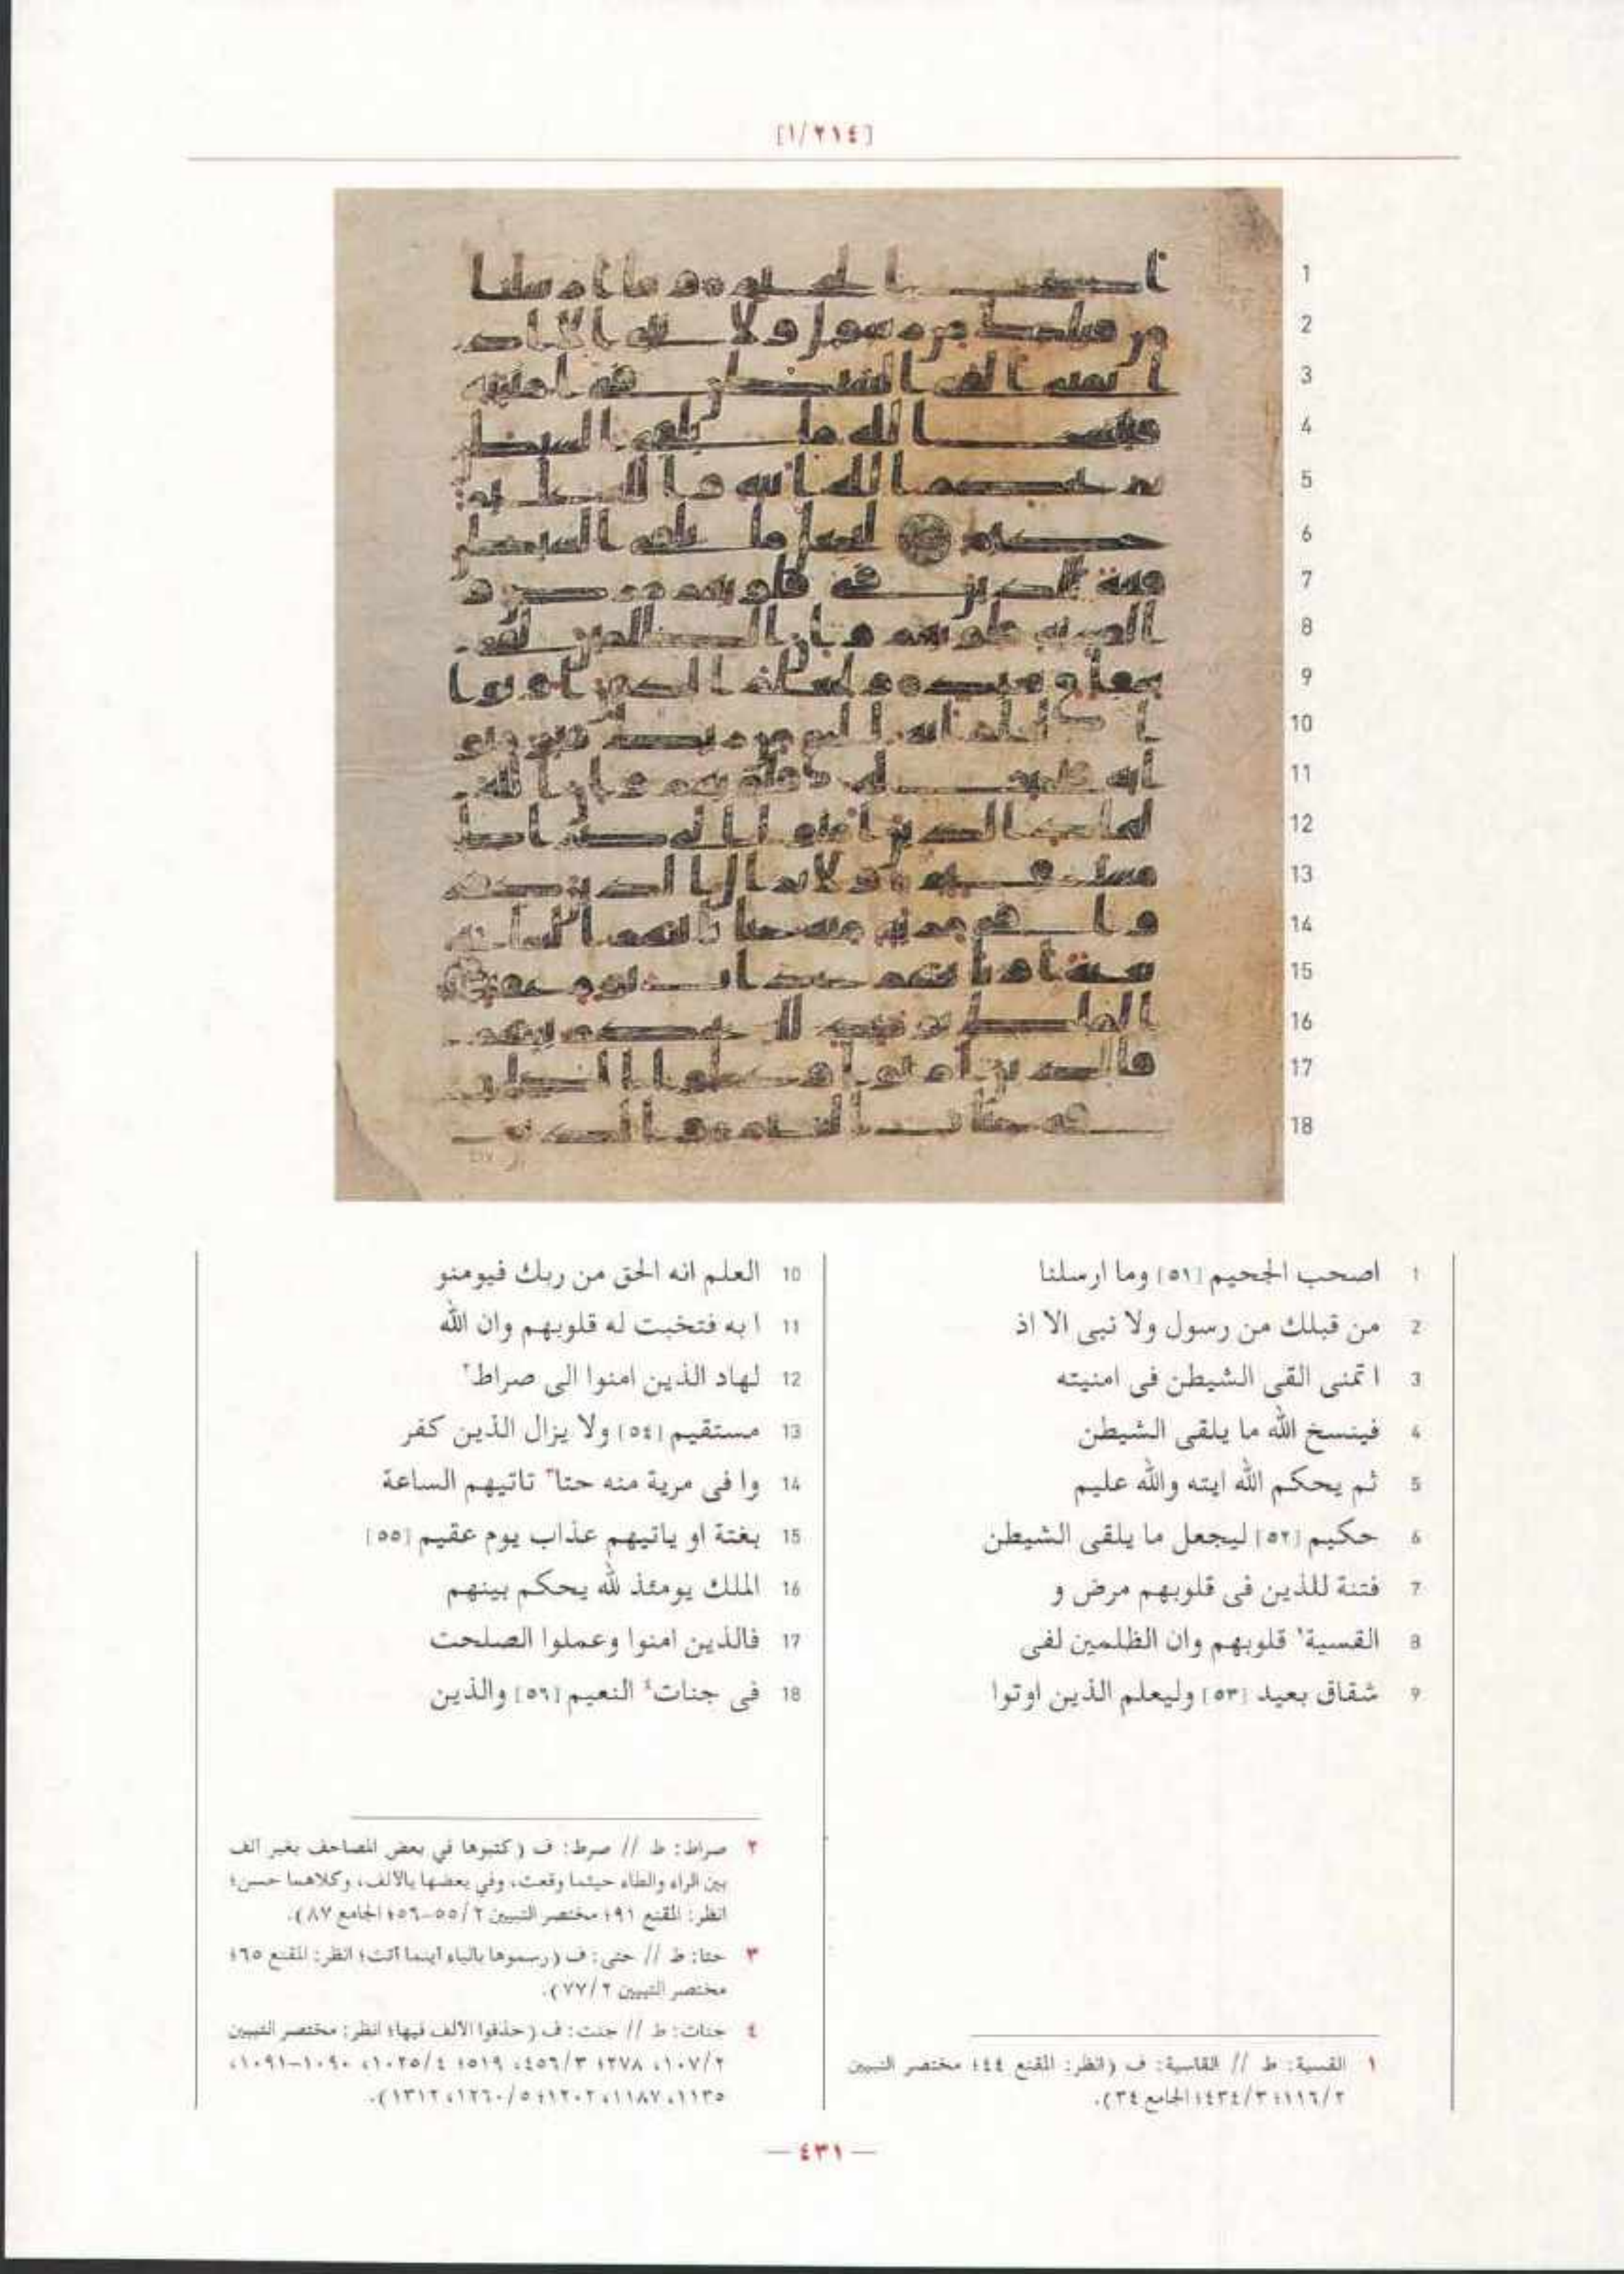 [١/٢١٤]
1 اصحب الجحيم [٥١] وما ارسلنا
2 من قبلك من رسول ولا نبى الا اذ
3 ا تمنى القى الشيطن فى امنيته
4 فينسخ الله ما يلقى الشيطن
5 ثم يحكم الله ايته والله عليم
6 حكيم [٥٢] ليجعل ما يلقى الشيطن
7 فتنة للذين فى قلوبهم مرض و
8 القسية١ قلوبهم وان الظلمين لفى
9 شقاق بعيد [٥٣] وليعلم الذين اوتوا
10 العلم انه الحق من ربك فيومنو
11 ا به فتخبت له قلوبهم وان الله
12 لهاد الذين امنوا الى صراط٢
13 مستقيم [٥٤] ولا يزال الذين كفر
14 وا فى مرية منه حتا٣ تاتيهم الساعة
15 بغتة او ياتيهم عذاب يوم عقيم [٥٥]
16 الملك يومئذ لله يحكم بينهم
17 فالذين امنوا وعملوا الصلحت
18 فى جنات٤ النعيم [٥٦] والذين
١ القسية: ط // القاسية: ف (انظر: المقنع ٤٤؛ مختصر التبيين
٢/١١٦؛ ٣/٤٣٤؛ الجامع ٣٤).
٢ صراط: ط // صرط: ف (كتبوها في بعض المصاحف بغير ألف
بين الراء والطاء حيثما وقعت، وفي بعضها بالألف، وكلاهما حسن؛
انظر: المقنع ٩١؛ مختصر التبيين ٢/٥٥-٥٦؛ الجامع ٨٧).
٣ حتا: ط // حتى: ف (رسموها بالياء أينما أتت؛ انظر: المقنع ٦٥؛
مختصر التبيين ٢/٧٧).
٤ جنات: ط // جنت: ف (حذفوا الألف فيها؛ انظر: مختصر التبيين
٢/١٠٧، ٢٧٨؛ ٣/٤٥٦، ٥١٩؛ ٤/١٠٢٥، ١٠٩٠-١٠٩١،
١١٣٥، ١١٨٧، ١٢٠٢؛ ٥/١٢٦٠، ١٣١٢).
— ٤٣١ —